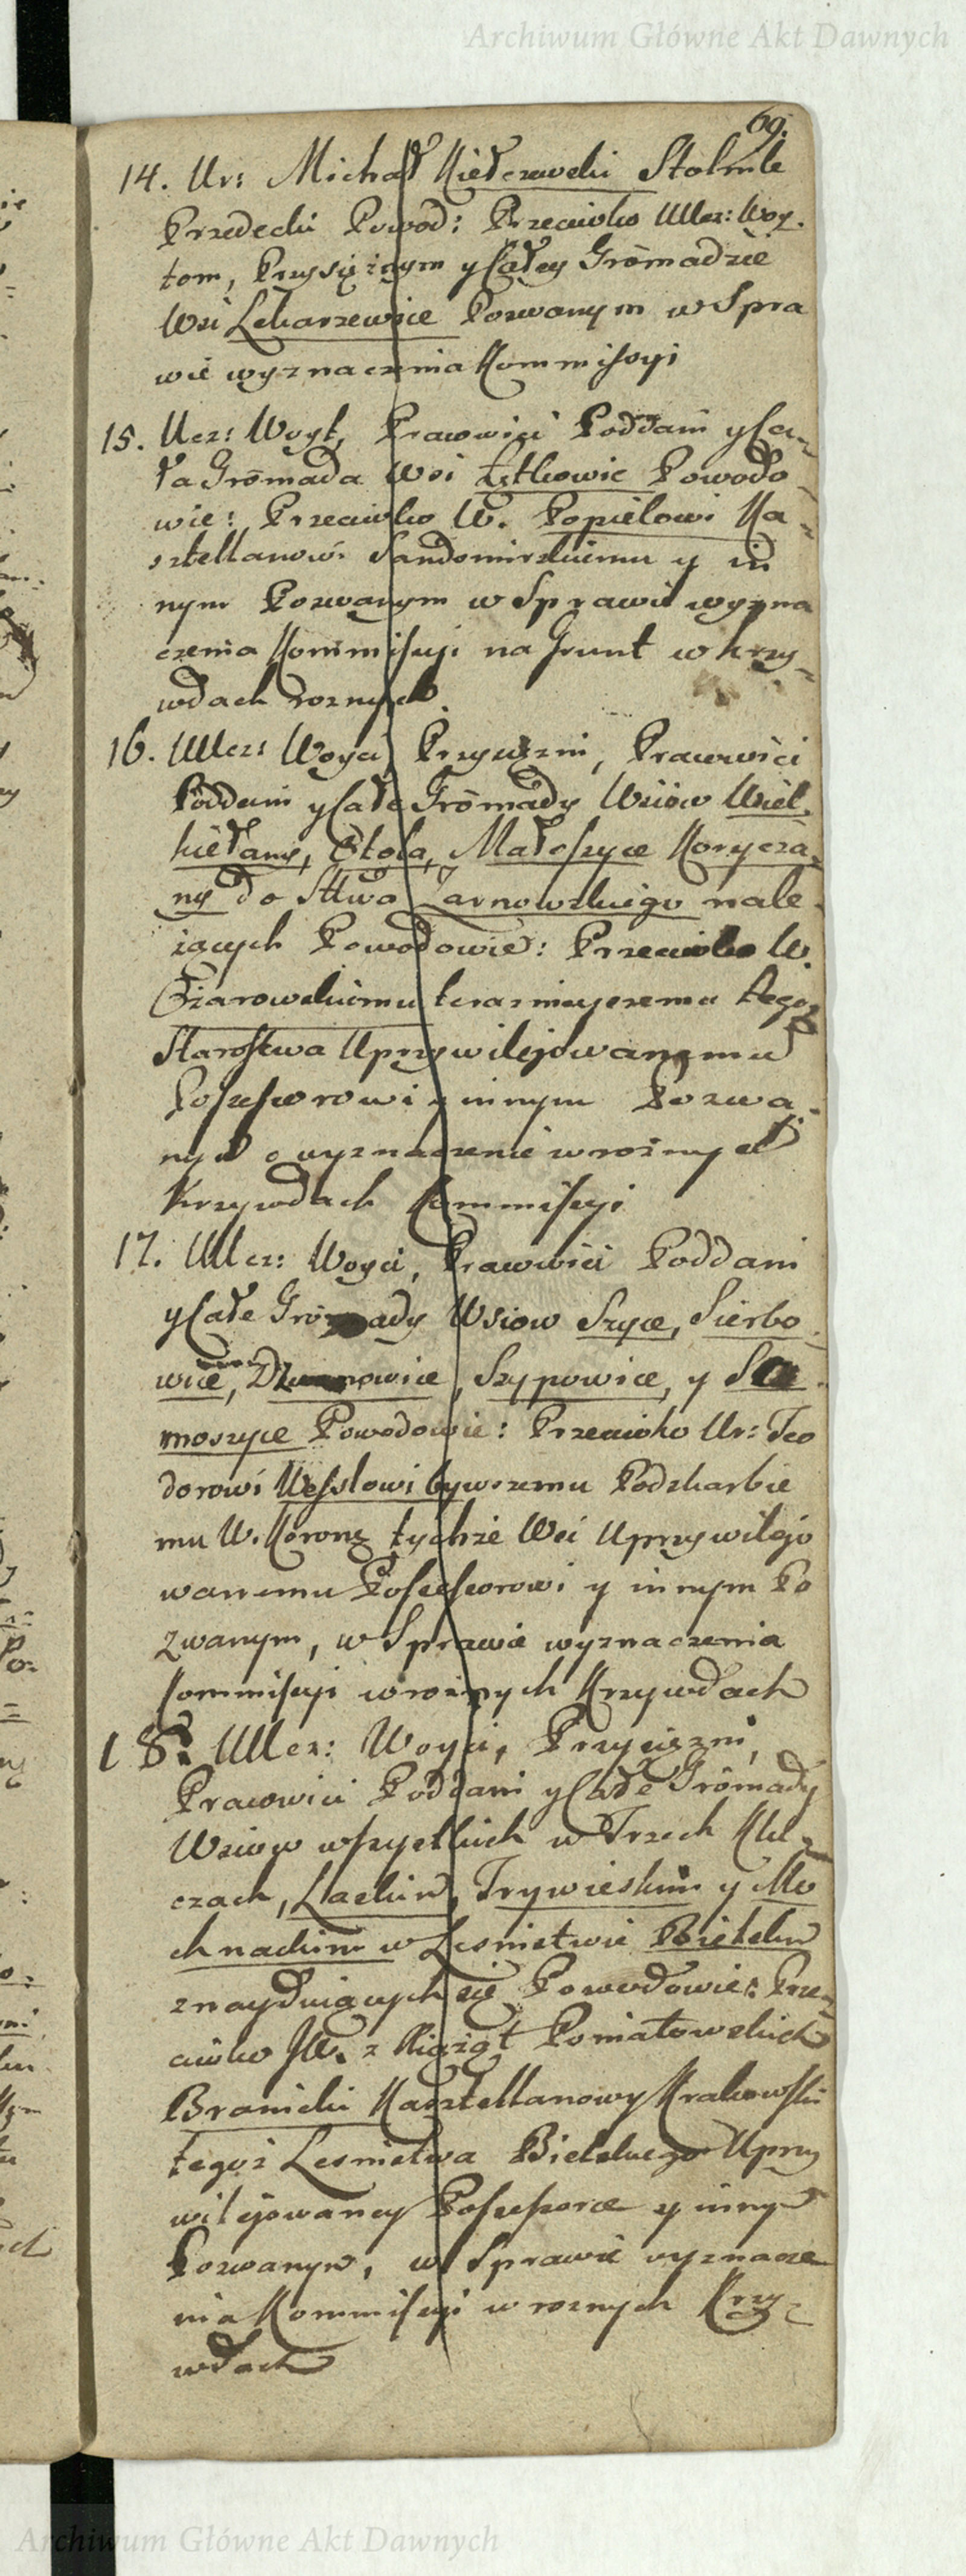 Archiwum Główne Akt Dawnych
69.
14. Ur: Michał Kiełczewski Stolnik
Przedecki Powod: Przeciwko UUcz: Woy-
tom, Przysiężnym y Całey Gromadzie
Wsi Lekarzewice Pozwanym w Spra
wie wyznaczenia Kommissyi
15. Ucz: Woyt, Pracowici Poddani y Ca-
ła Gromada Wsi Łętkowic Powodo-
wie: Przeciwko W. Popielowi Ka-
sztellanowi Sandomirskiemu y in
nym Pozwanym w Sprawie wyzna
czenia Kommissyi na Grunt w krzy-
wdach roznych.
16. UUcz: Woyci, Przysiężni, Pracowici
Poddani y Całe Gromady Wsiow Wiel-
kiełany, Otola, Małoszyce Korycza-
ny do Sttwa Żarnowskiego nale-
żących Powodowie: Przeciwko W.
Ożarowskiemu teraznieyszemu tegoz
Starostwa Uprzywilejowanemu
Possessorowi y innym Pozwa-
nym o wyznaczenie w rożnych
Krzywdach Kommissyi
17. UUcz: Woyci, Pracowici Poddani
y Całe Gromady Wsiow Szyce, Sierbo-
wice, Dzwonowice, Szypowice, y Sia-
moszyce Powodowie: Przeciwko Ur: Teo
dorowi Wesslowi bywszemu Podskarbie
mu W. Koronę tychże Wsi Uprzywilejo
wanemu Possessorowi y innym Po
zwanym, w Sprawie wyznaczenia
Kommissyi w rożnych Krzywdach
18. UUcz: Woyci, Przysiężni,
Pracowici Poddani y Całe Gromady
Wsiow wszystkich w Trzech Klu-
czach, Lackim, Trywieskim y Mo
chnackim w Lesnictwie Bielskim
znayduiących się Powodowie: Prze-
ciwko JW. z Xiążąt Poniatowskich
Branicki Kasztellanowy Krakowski
tegoż Lesnictwa Bielskiego Uprzy
wilejowaney Possessorce y innym
Pozwanym, w Sprawie wyznacze
nia Kommissyi w roznych Krzy-
wdach
Archiwum Główne Akt Dawnych